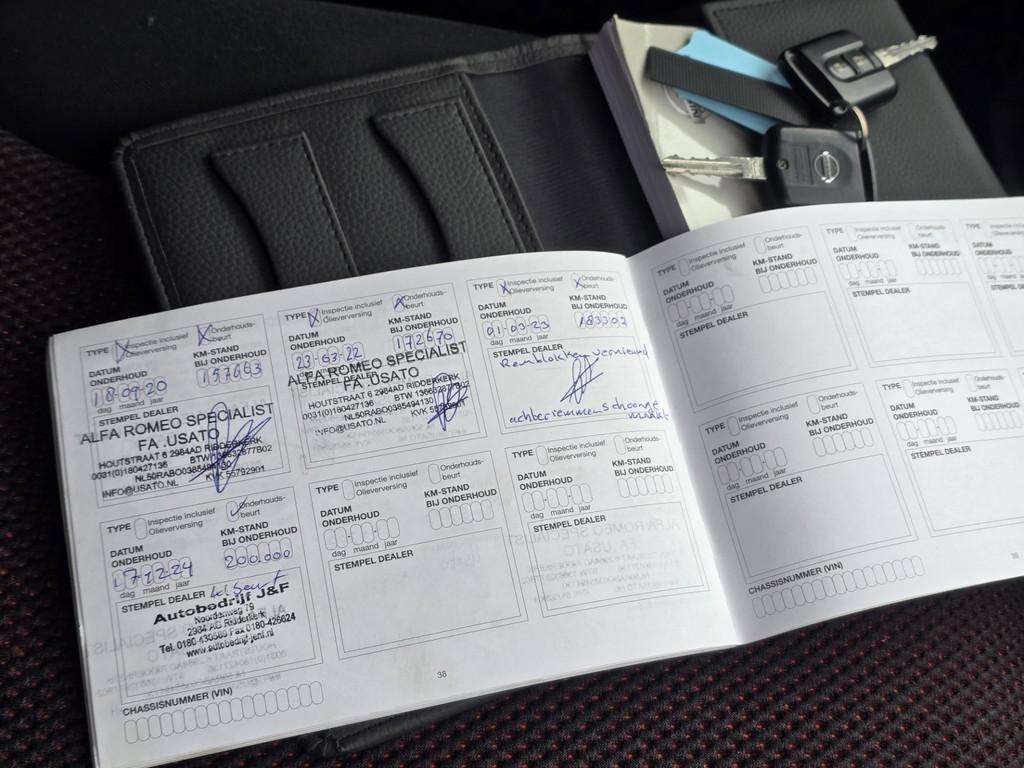 TYPE Inspectie inclusief Olieverversing Onderhouds-beurt
DATUM ONDERHOUD KM-STAND BIJ ONDERHOUD
18-09-20 157663
dag maand jaar
STEMPEL DEALER
ALFA ROMEO SPECIALIST
FA .USATO
HOUTSTRAAT 6 2984AD RIDDERKERK
0031(0)180427136 BTW
INFO@USATO.NL KVK 55792901
TYPE Inspectie inclusief Olieverversing Onderhouds-beurt
DATUM ONDERHOUD KM-STAND BIJ ONDERHOUD
23-03-22 172670
dag maand jaar
STEMPEL DEALER
ALFA ROMEO SPECIALIST
FA .USATO
HOUTSTRAAT 6 2984AD RIDDERKERK
0031(0)180427136 BTW
NL50RABO0385494130 KVK
INFO@USATO.NL
TYPE Inspectie inclusief Olieverversing Onderhouds-beurt
DATUM ONDERHOUD KM-STAND BIJ ONDERHOUD
01-03-23 183303
dag maand jaar
STEMPEL DEALER
Remblokken vernieuwd
TYPE Inspectie inclusief Olieverversing Onderhouds-beurt
DATUM ONDERHOUD KM-STAND BIJ ONDERHOUD
17-12-24 200.000
dag maand jaar
STEMPEL DEALER
Autobedrijf J&F
Noordenweg 79
2984 AG Ridderkerk
Tel. 0180-430569 Fax 0180-426624
www.autobedrijf-jenf.nl
TYPE Inspectie inclusief Olieverversing Onderhouds-beurt
DATUM ONDERHOUD KM-STAND BIJ ONDERHOUD
dag maand jaar
STEMPEL DEALER
TYPE Inspectie inclusief Olieverversing Onderhouds-beurt
DATUM ONDERHOUD KM-STAND BIJ ONDERHOUD
dag maand jaar
STEMPEL DEALER
CHASSISNUMMER (VIN)
38
TYPE Inspectie inclusief Olieverversing Onderhouds-beurt
DATUM ONDERHOUD KM-STAND BIJ ONDERHOUD
dag maand jaar
STEMPEL DEALER
TYPE Inspectie inclusief Olieverversing Onderhouds-beurt
DATUM ONDERHOUD KM-STAND BIJ ONDERHOUD
dag maand jaar
STEMPEL DEALER
TYPE
DATUM ONDERHOUD
dag
STEMPEL
TYPE Inspectie inclusief Olieverversing Onderhouds-beurt
DATUM ONDERHOUD KM-STAND BIJ ONDERHOUD
dag maand jaar
STEMPEL DEALER
TYPE Inspectie inclusief Olieverversing
DATUM ONDERHOUD
dag maand jaar
STEMPEL DEALER
CHASSISNUMMER (VIN)